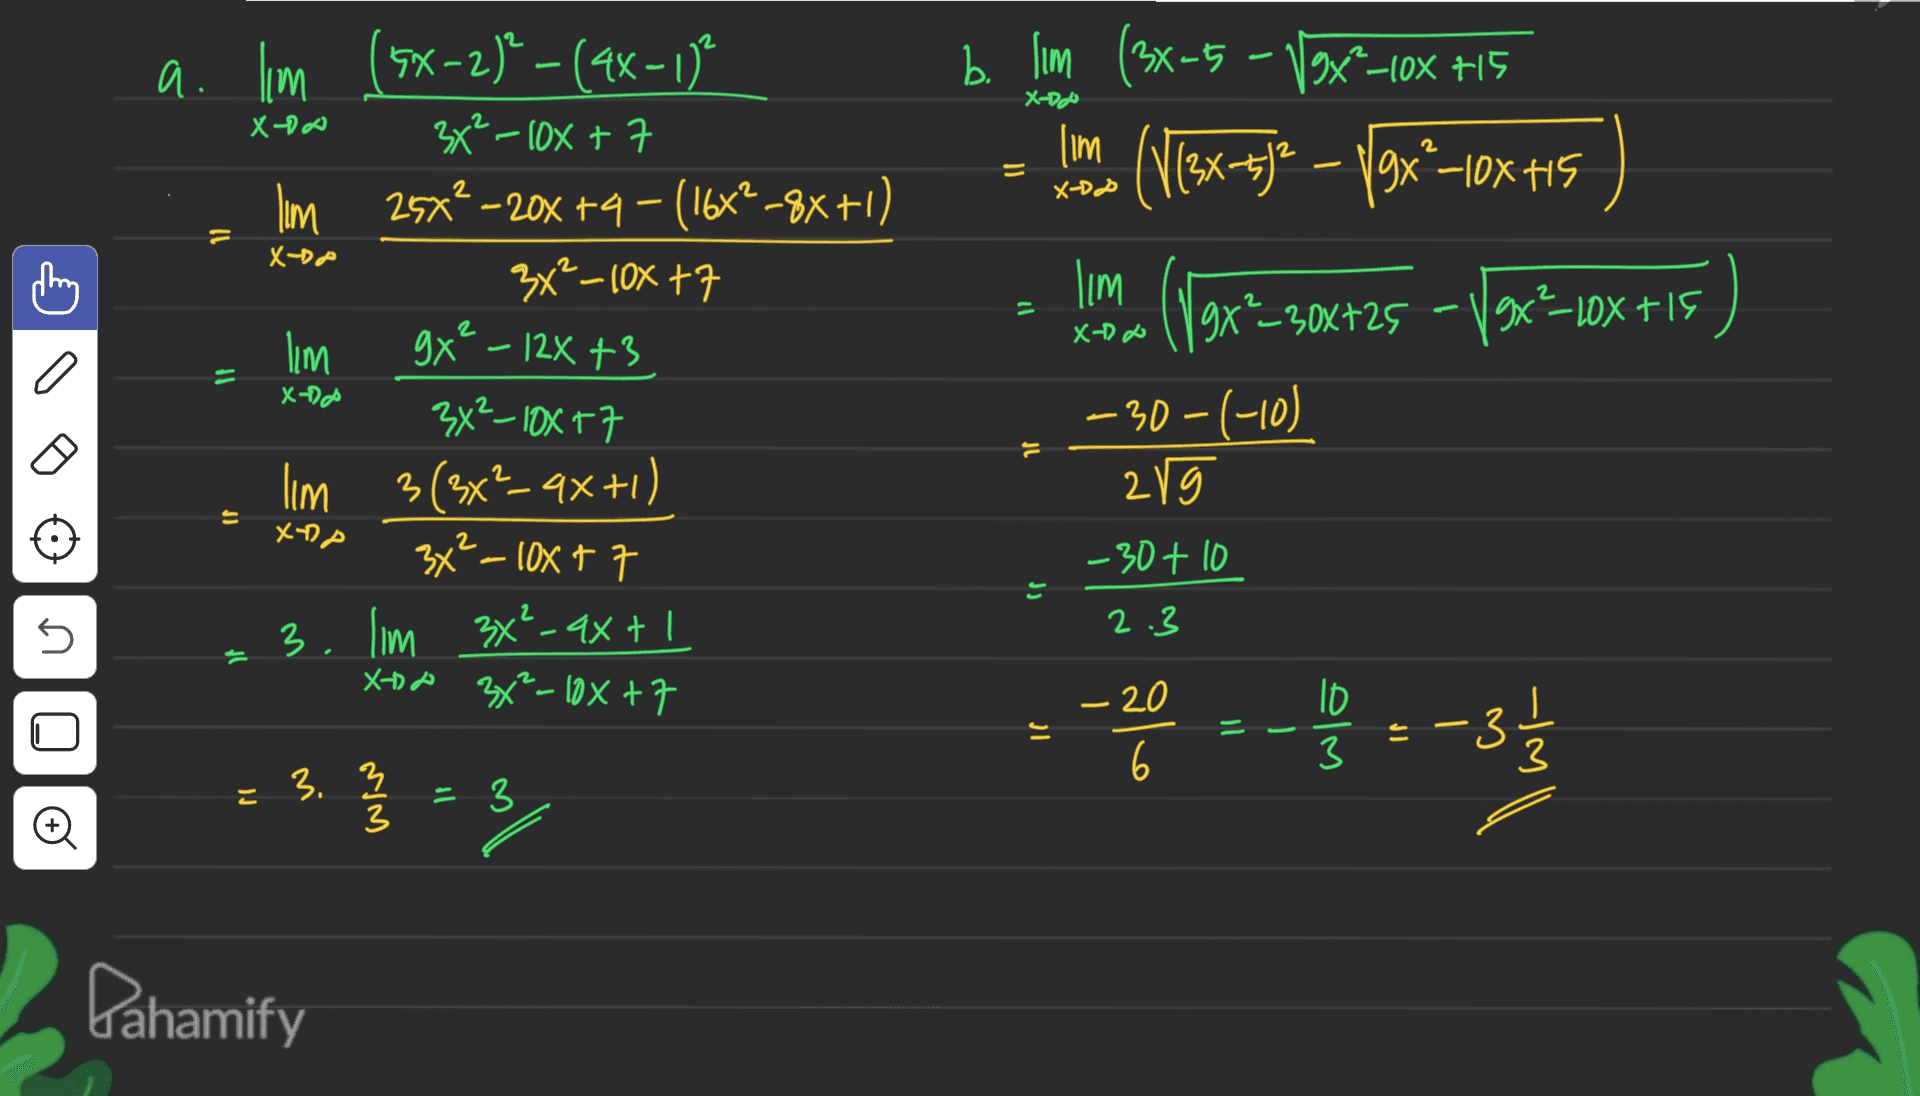 a. lim (5x-2)² - (4x-1)² / 3x² - 10x + 7
x→∞
= lim 25x² - 20x + 4 - (16x² - 8x + 1) / 3x² - 10x + 7
x→∞
= lim 9x² - 12x + 3 / 3x² - 10x + 7
x→∞
= lim 3(3x² - 4x + 1) / 3x² - 10x + 7
x→∞
= 3. lim 3x² - 4x + 1 / 3x² - 10x + 7
x→∞
= 3. 3/3 = 3
b. lim (3x-5 - √9x²-10x+15
x→∞
= lim (√(3x-5)² - √9x²-10x+15)
x→∞
= lim (√9x²-30x+25 - √9x²-10x+15)
x→∞
= -30-(-10) / 2√9
= -30+10 / 2.3
= -20/6 = -10/3 = -3 1/3
Pahamify